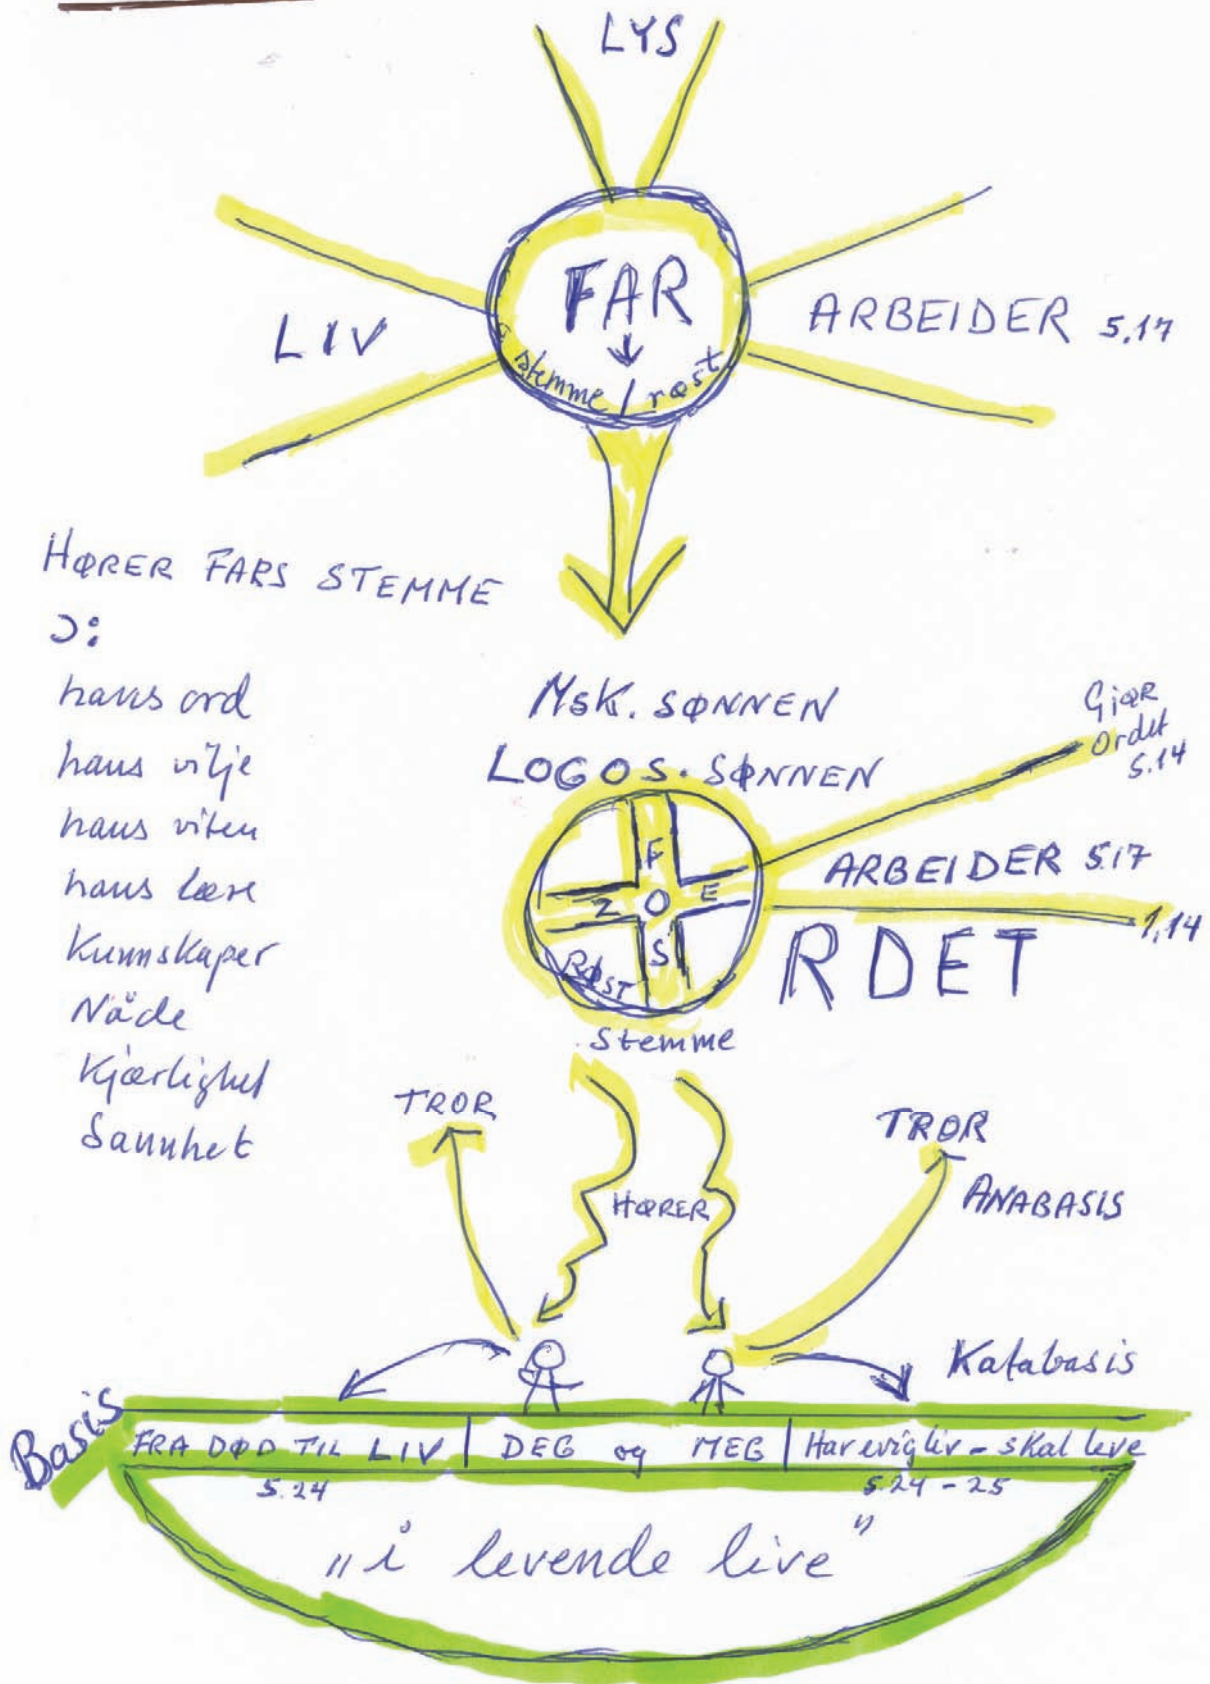 LYS
FAR
LIV
ARBEIDER 5,17
stemme / røst
HØRER FARS STEMME
ɔ:
hans ord
hans vilje
hans viten
hans lære
Kunnskaper
Nåde
Kjærlighet
Sannhet
MSK. SØNNEN
LOGOS. SØNNEN
GjØR
Ordet
5.14
F
Z O E
S
RØST
ARBEIDER 5.17
1,14
RDET
Stemme
TROR
TROR
HØRER
ANABASIS
Katabasis
Basis
FRA DØD TIL LIV | DEG og MEG | Har evig liv - skal leve
5.24
5.24 - 25
"i levende live"